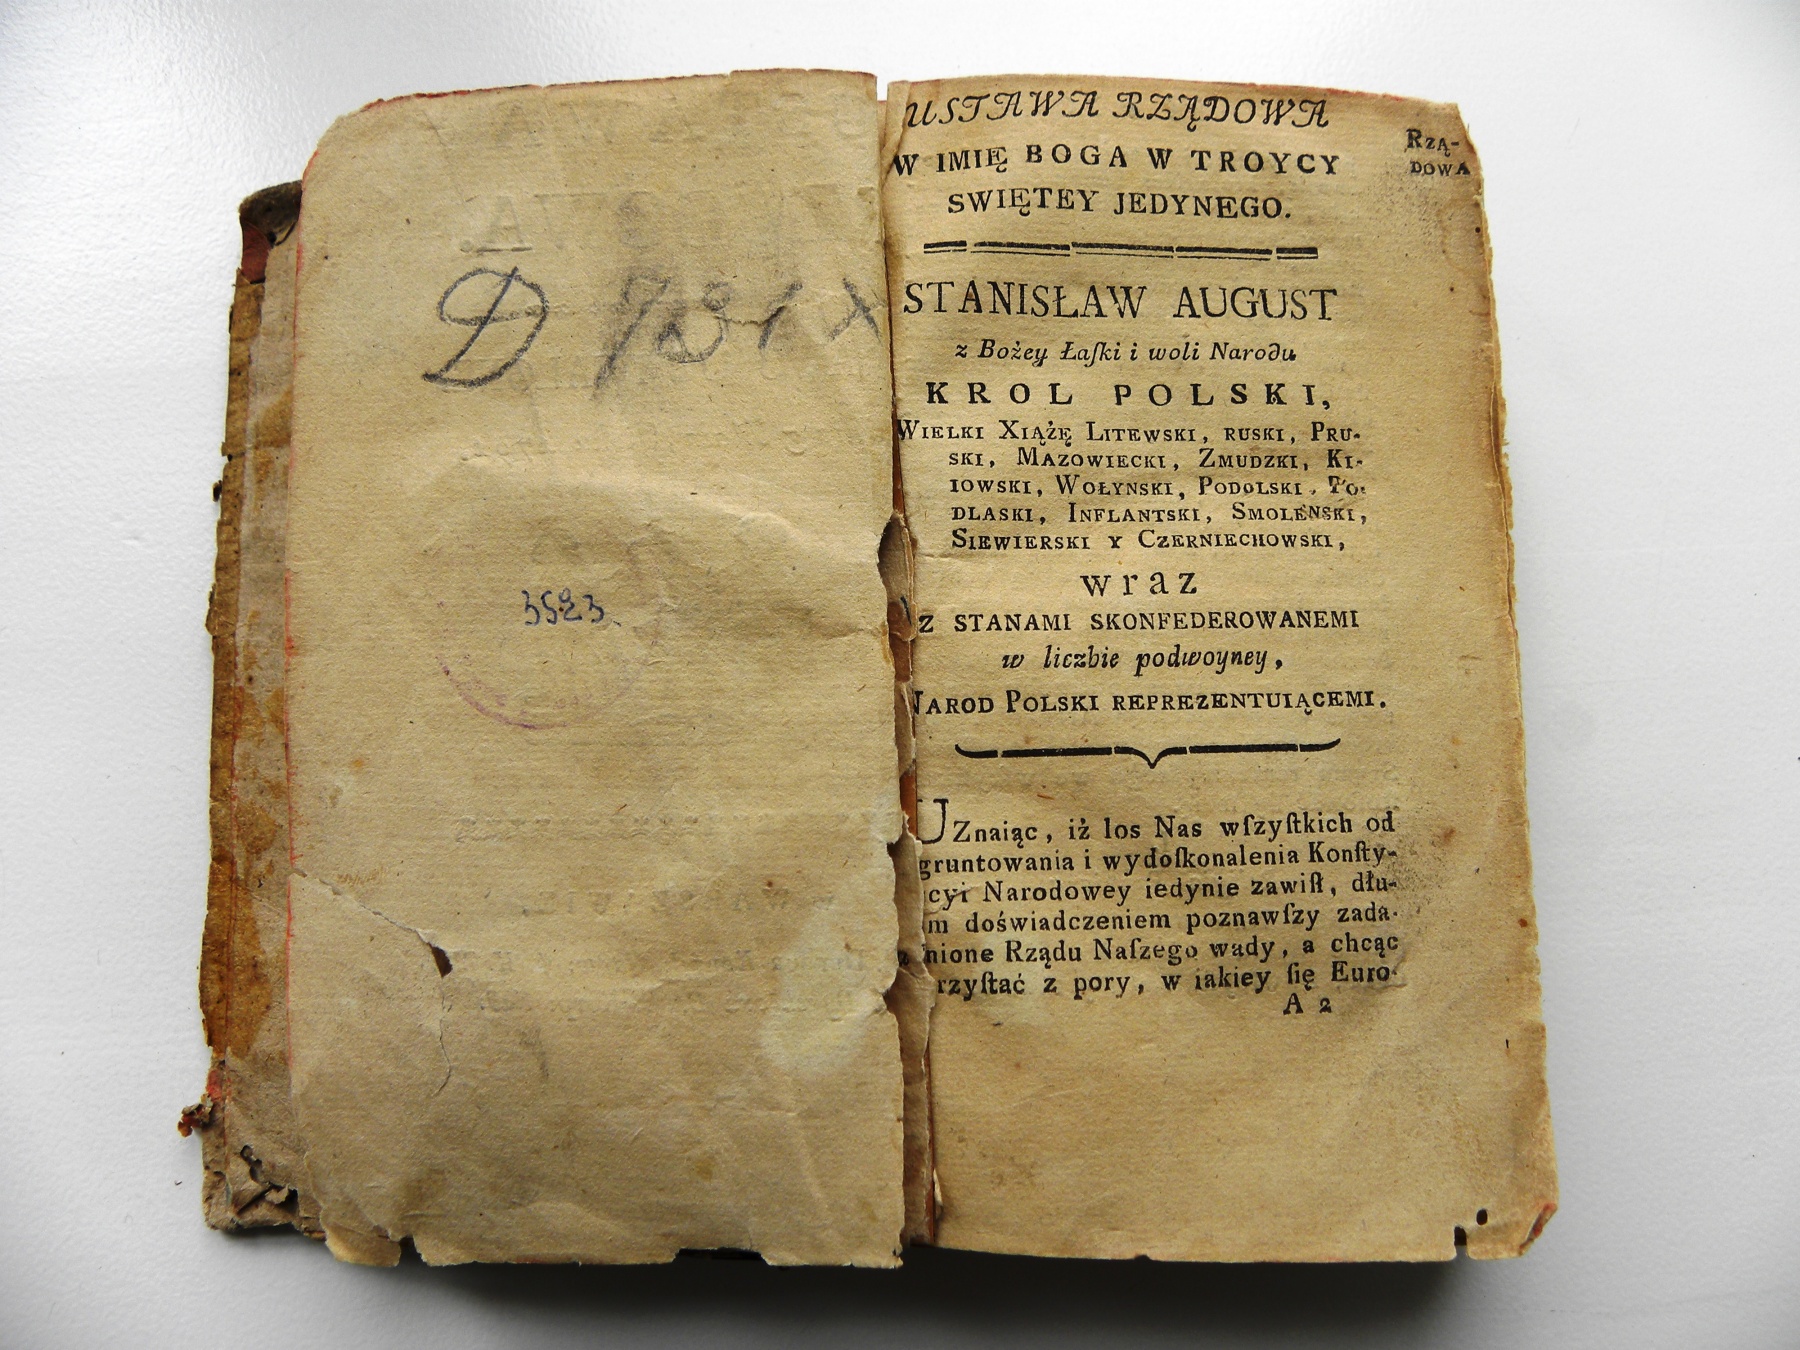 3523
USTAWA RZĄDOWA
RZĄ-
DOWA
W IMIĘ BOGA W TROYCY
SWIĘTEY JEDYNEGO.
STANISŁAW AUGUST
z Bożey Łaſki i woli Narodu
KROL POLSKI,
WIELKI XIĄŻĘ LITEWSKI, RUSKI, PRU-
SKI, MAZOWIECKI, ZMUDZKI, KI-
IOWSKI, WOŁYNSKI, PODOLSKI, PO-
DLASKI, INFLANTSKI, SMOLENSKI,
SIEWIERSKI Y CZERNIECHOWSKI,
wraz
Z STANAMI SKONFEDEROWANEMI
w liczbie podwoyney,
NAROD POLSKI REPREZENTUIĄCEMI.
UZnaiąc, iż los Nas wſzyſtkich od
gruntowania i wydoſkonalenia Konſty-
cyi Narodowey iedynie zawiſł, dłu-
m doświadczeniem poznawſzy zada-
nione Rządu Naſzego wady, a chcąc
rzyſtać z pory, w iakiey ſię Euro-
A 2